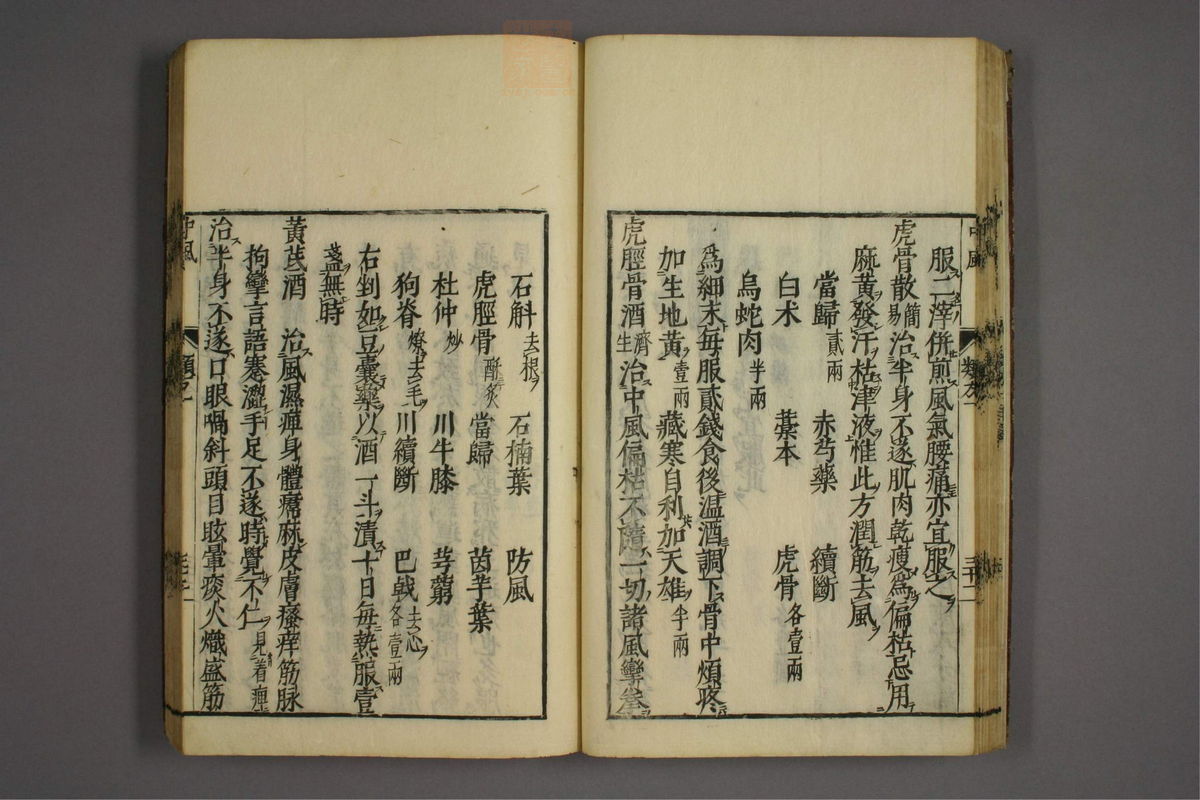 服二滓併煎風氣腰痛亦宜服之
虎骨散簡易治半身不遂肌肉乾瘦爲偏枯忌用
麻黃發汗枯津液惟此方潤筋去風
當歸貳兩 赤芍藥 續斷
白朮 藁本 虎骨各壹兩
烏蛇肉半兩
爲細末每服貳錢食後温酒調下骨中煩疼
加生地黃壹兩藏寒自利加天雄半兩
虎脛骨酒濟生治中風偏枯不隨一切諸風攣拳
石斛去根 石楠葉 防風
虎脛骨酥炙 當歸 茵芋葉
杜仲炒 川牛膝 芎藭
狗脊燎去毛 川續斷 巴戟去心各壹兩
右剉如豆囊藥以酒一斗漬十日每熱服壹
盞無時
黃芪酒 治風濕痺身體𤸷麻皮膚瘙痒筋脉
拘攣言語蹇澀手足不遂時覺不仁見着痺
治半身不遂口眼喎斜頭目眩暈痰火熾盛筋
中風